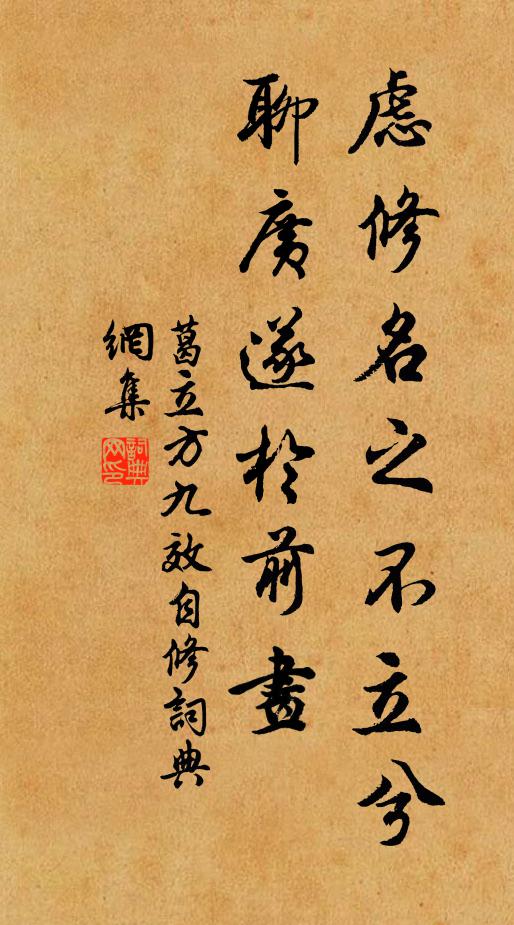 慮修名之不立兮
聊廣遂於前畫
葛立方九效自修詞典
網集
詞典網印